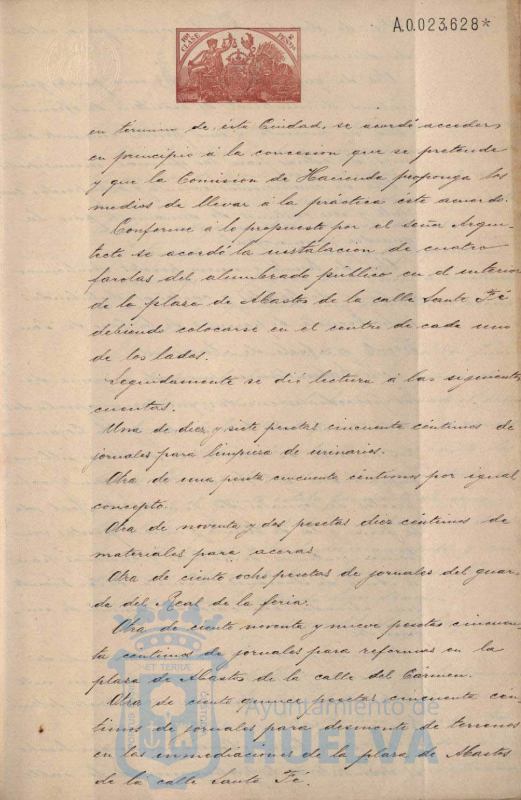 A.0.023.628*
10ª CLASE
en término de esta Ciudad, se acordó acceder
en principio á la concesion que se pretende
y que la Comision de Hacienda proponga los
medios de llevar á la práctica éste acuerdo.
Conforme á lo propuesto por el señor Arqui-
tecto se acordó la instalacion de cuatro
farolas del alumbrado público en el interior
de la plaza de Abastos de la calle Santa Fé
debiendo colocarse en el centro de cada uno
de los lados.
Seguidamente se dió lectura á las siguientes
cuentas.
Una de diez y siete pesetas cincuenta céntimos de
jornales para limpieza de urinarios.
Otra de una peseta cincuenta céntimos por igual
concepto.
Otra de noventa y dos pesetas diez céntimos de
materiales para aceras.
Otra de ciento ocho pesetas de jornales del guar-
da del Real de la feria.
Otra de ciento noventa y nueve pesetas cincuen-
ta céntimos de jornales para reformas en la
plaza de Abastos de la calle del Cármen.
Otra de ciento quince pesetas cincuenta cén-
timos de jornales para desmonte de terrenos
en las inmediaciones de la plaza de Abastos
de la calle Santa Fé.
Ayuntamiento de
HUELVA